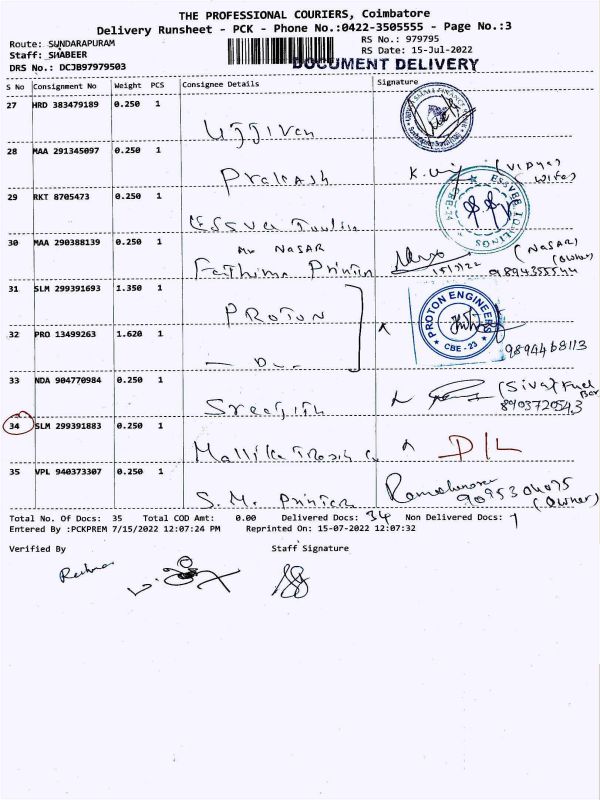 THE PROFESSIONAL COURIERS, Coimbatore
Delivery Runsheet - PCK - Phone No.:0422-3505555 - Page No.:3
Route: SUNDARAPURAM
RS No.: 979795
Staff: SHABEER
RS Date: 15-Jul-2022
DRS No.: DCJB97979503
DOCUMENT DELIVERY
S No Consignment No Weight PCS Consignee Details Signature
27 HRD 383479189 0.250 1
Ujjivan
28 MAA 291345097 0.250 1
Prakash K. (Vidya) wife)
29 RKT 8705473 0.250 1
ESSVEE TOOLINGS
30 MAA 290388139 0.250 1
Mr NASAR
Fathima Printer 15/7/22 (NASAR) (Owner) 9894355544
31 SLM 299391693 1.350 1
PROTON
PROTON ENGINEERS
CBE - 23
32 PRO 13499263 1.620 1
— Do —
9894468113
33 NDA 904770984 0.250 1
Sreejith (Siva) Fuel Bar
8903720543
34 SLM 299391883 0.250 1
Mallika D/L
35 VPL 940373307 0.250 1
S.M. Printer 9095304095 (Owner)
Total No. Of Docs: 35 Total COD Amt: 0.00 Delivered Docs: 34 Non Delivered Docs: 1
Entered By :PCKPREM 7/15/2022 12:07:24 PM Reprinted On: 15-07-2022 12:07:32
Verified By Staff Signature